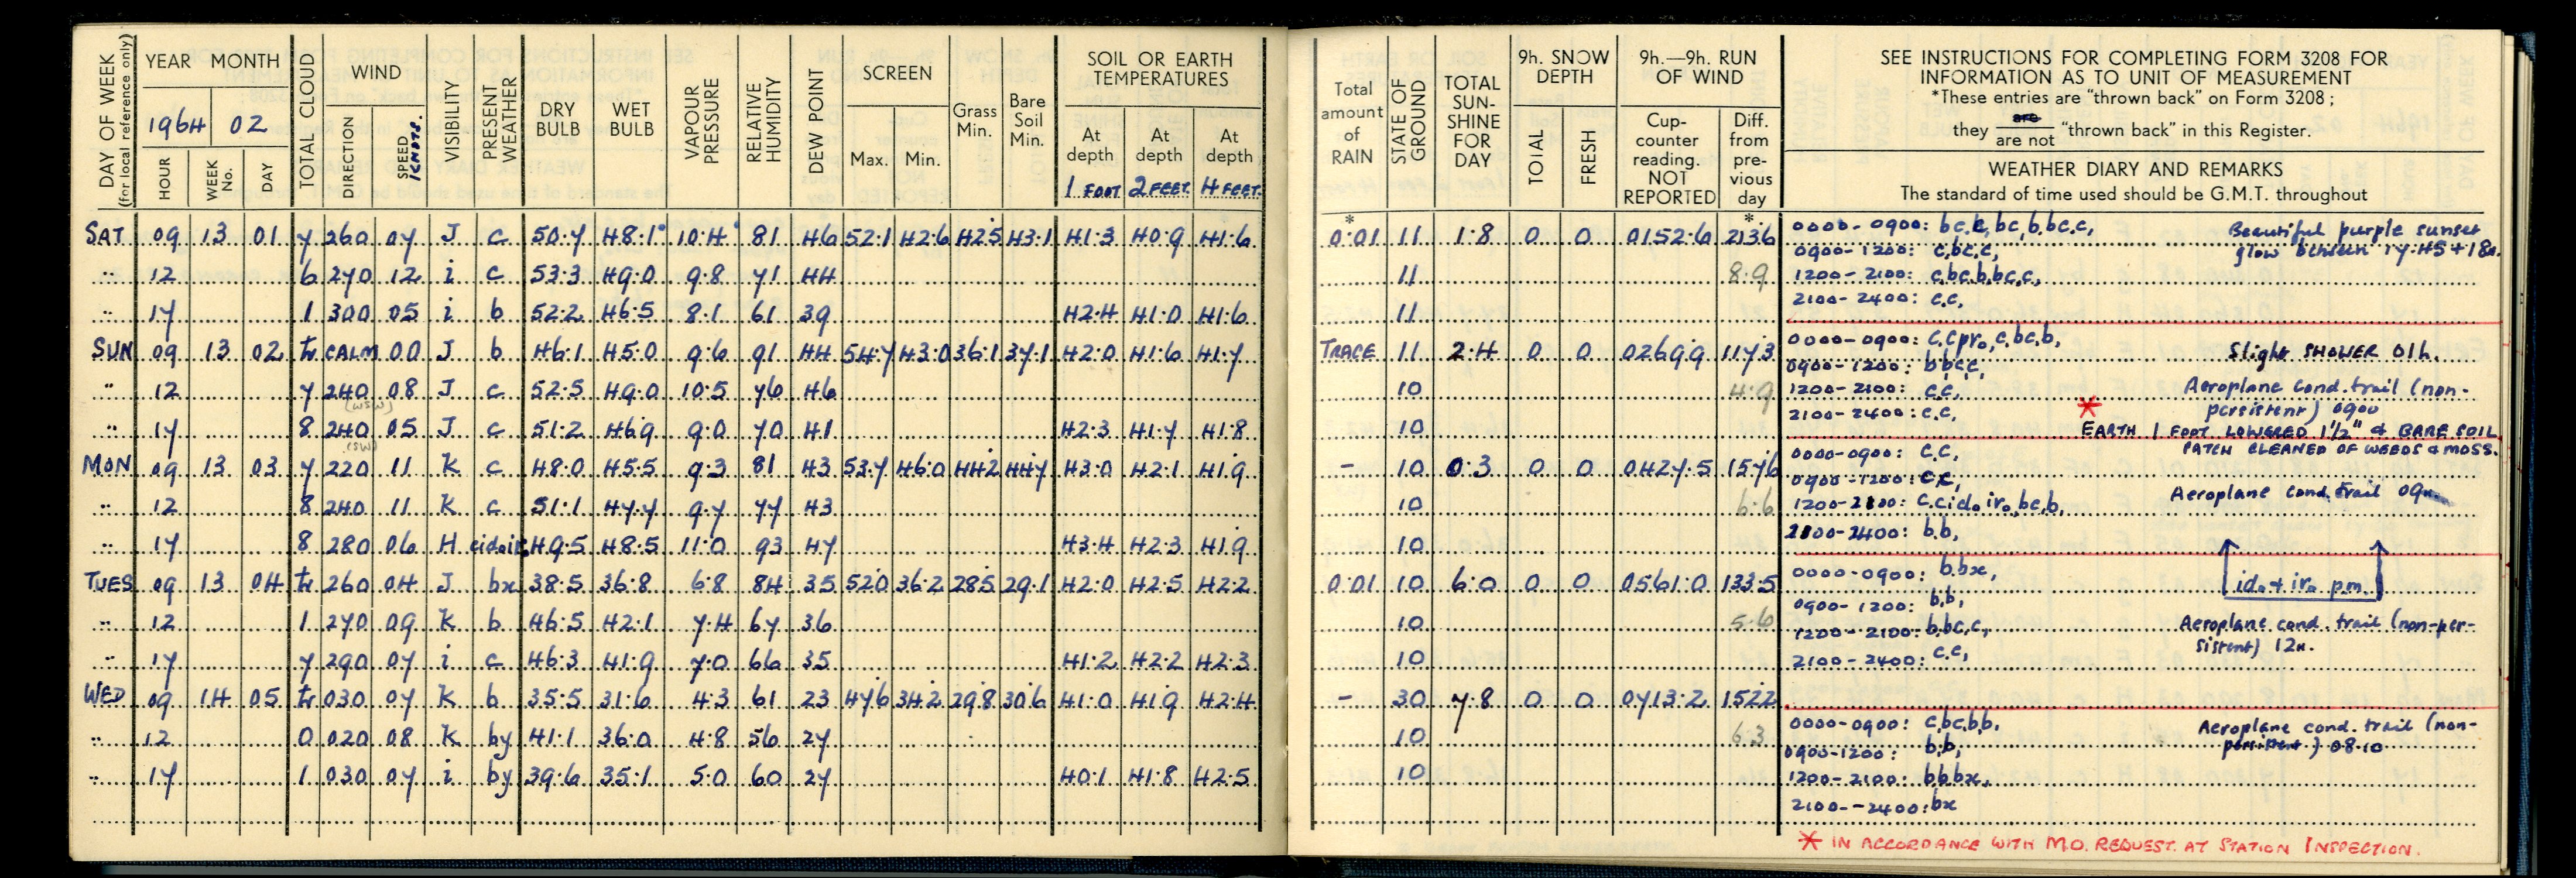 DAY OF WEEK
(for local reference only)
YEAR MONTH
1964 02
HOUR WEEK No. DAY
TOTAL CLOUD
WIND
DIRECTION SPEED KNOTS.
VISIBILITY
PRESENT WEATHER
DRY BULB
WET BULB
VAPOUR PRESSURE
RELATIVE HUMIDITY
DEW POINT
SCREEN
Max. Min.
Grass Min.
Bare Soil Min.
SOIL OR EARTH
TEMPERATURES
At depth At depth At depth
1 FOOT 2 FEET. 4 FEET.
Total amount of RAIN
STATE OF GROUND
TOTAL SUN-SHINE FOR DAY
9h. SNOW DEPTH
TOTAL FRESH
9h.—9h. RUN OF WIND
Cup-counter reading. NOT REPORTED
Diff. from pre-vious day
SEE INSTRUCTIONS FOR COMPLETING FORM 3208 FOR
INFORMATION AS TO UNIT OF MEASUREMENT
*These entries are "thrown back" on Form 3208;
they are / are not "thrown back" in this Register.
WEATHER DIARY AND REMARKS
The standard of time used should be G.M.T. throughout
SAT 09 13 01 7 260 07 J c 50.7 48.1 10.4 81 46 52.1 42.6 42.5 43.1 41.3 40.9 41.6 * 0.01 11 1.8 0 0 0152.6 * 213.6
" 12 6 270 12 i c 53.3 49.0 9.8 71 44 11 8.9
" 17 1 300 05 i b 52.2 46.5 8.1 61 39 42.4 41.0 41.6 11
SUN 09 13 02 tr CALM 00 J b 46.1 45.0 9.6 91 44 54.7 43.0 36.1 37.1 42.0 41.6 41.7 TRACE 11 2.4 0 0 0269.9 117.3
" 12 7 240 08 J c 52.5 49.0 10.5 76 46 10 4.9
(WSW)
" 17 8 240 05 J c 51.2 46.9 9.0 70 41 42.3 41.7 41.8 10
(SW)
MON 09 13 03 7 220 11 K c 48.0 45.5 9.3 81 43 53.7 46.0 44.2 44.7 43.0 42.1 41.9 - 10 0.3 0 0 0427.5 157.6
" 12 8 240 11 K c 51.1 47.7 9.7 77 43 10 6.6
" 17 8 280 06 H 49.5 48.5 11.0 93 47 43.4 42.3 41.9 10
TUES 09 13 04 tr 260 04 J bx 38.5 36.8 6.8 84 35 52.0 36.2 28.5 29.1 42.0 42.5 42.2 0.01 10 6.0 0 0 0561.0 133.5
" 12 1 270 09 K b 46.5 42.1 7.4 67 36 10 5.6
" 17 7 290 07 i c 46.3 41.9 7.0 66 35 41.2 42.2 42.3 10
WED 09 14 05 tr 030 07 K b 35.5 31.6 4.3 61 23 47.6 34.2 29.8 30.6 41.0 41.9 42.4 - 30 7.8 0 0 0713.2 152.2
" 12 0 020 08 K by 41.1 36.0 4.8 56 27 10 6.3
" 17 1 030 07 i by 39.6 35.1 5.0 60 27 40.1 41.8 42.5 10
0000-0900: bc.c, bc, b.bc.c, Beautiful purple sunset
glow between 17.45 + 18h.
0900-1200: c,bc.c,
1200-2100: c,bc.b,bc,c,
2100-2400: c.c,
0000-0900: c.cpr₀,c,bc,b, Slight SHOWER 01h.
0900-1200: b,bc,c,
1200-2100: c.c, Aeroplane cond. trail (non-
2100-2400: c.c, persistent) 0900
* EARTH 1 FOOT LOWERED 1½" & BARE SOIL
PATCH CLEANED OF WEEDS & MOSS.
0000-0900: c.c,
0900-1200: c.c,
1200-2100: c.c id₀ ir₀,bc,b, Aeroplane cond. trail 09h
2100-2400: b.b,
id₀ + ir₀ p.m.
0000-0900: b.bx,
0900-1200: b.b,
1200-2100: b,bc,c, Aeroplane cond. trail (non-per-
2100-2400: c.c, sistent) 12h.
0000-0900: c,bc,b.b, Aeroplane cond. trail (non-
0900-1200: b.b, persistent) 08.10
1200-2100: b.b.bx,
2100-2400: bx
* IN ACCORDANCE WITH M.O. REQUEST AT STATION INSPECTION.